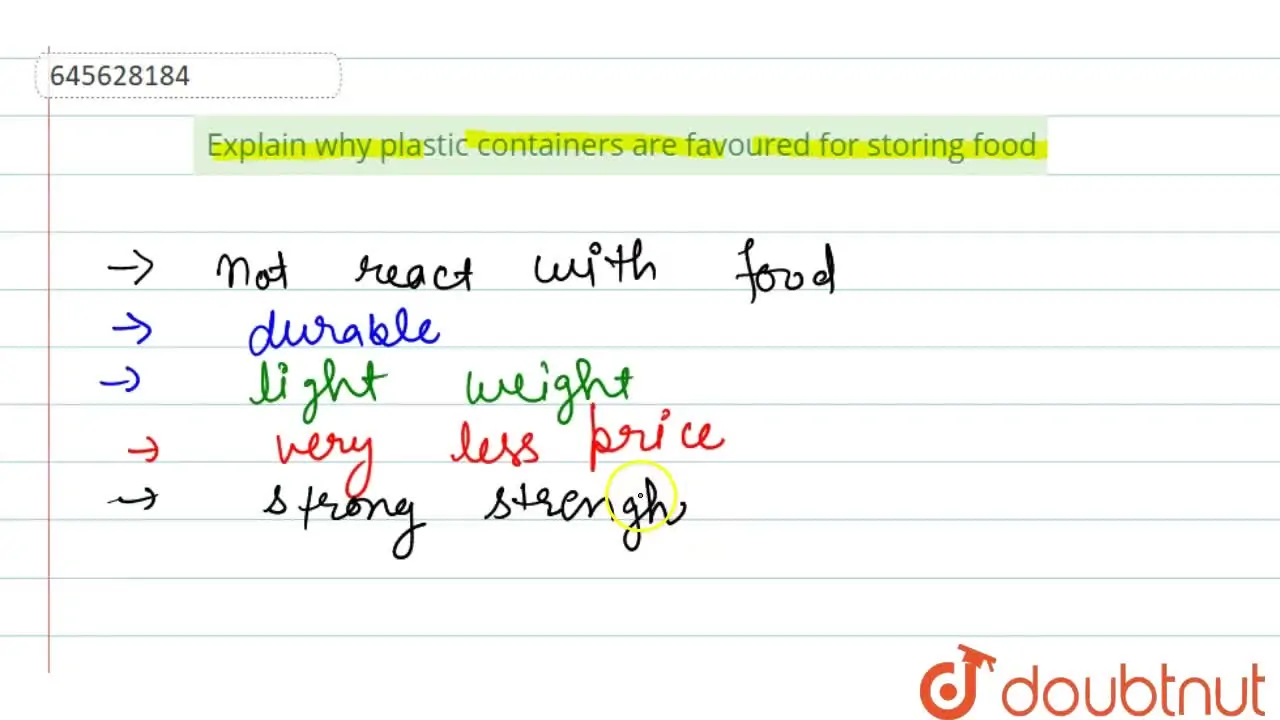 645628184
Explain why plastic containers are favoured for storing food
→ not react with food
→ durable
→ light weight
→ very less price
→ strong strengh
doubtnut